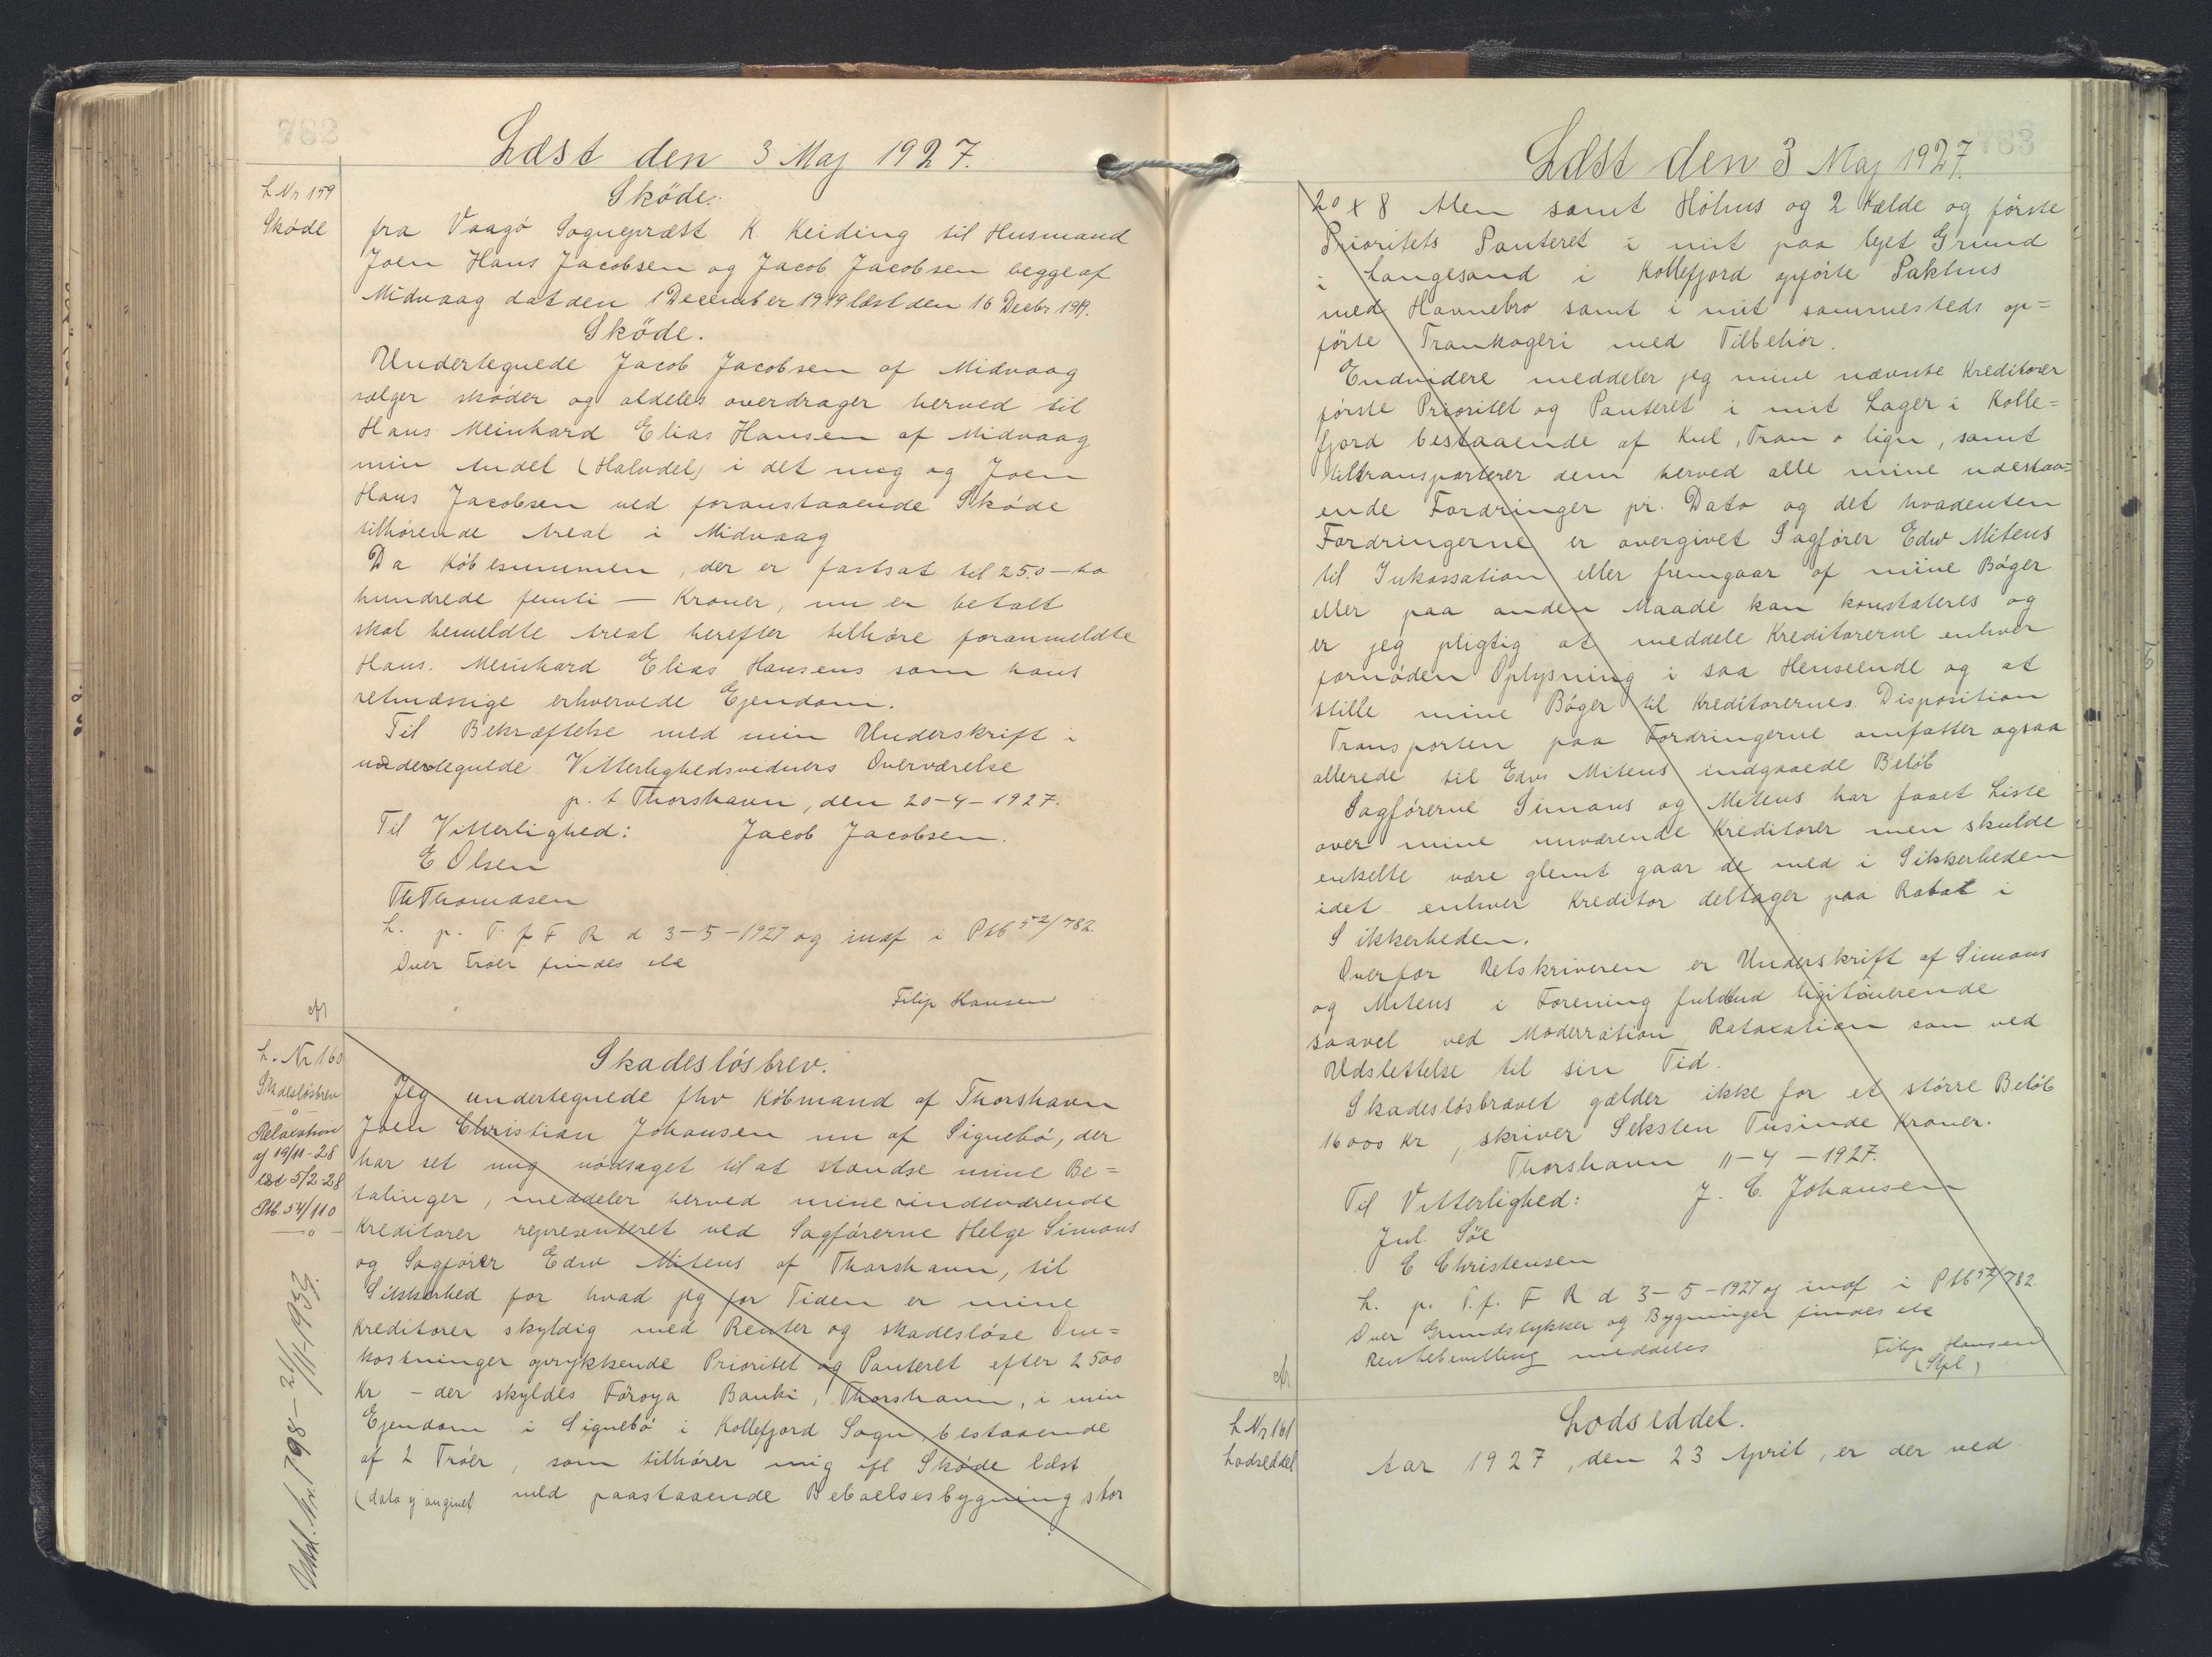 782
Læst den 3 Maj 1927.
L Nr 159
Skøde
Skøde.
fra Vaagø Sognepræst K. Keiding til Husmand
Joen Hans Jacobsen og Jacob Jacobsen begge af
Midvaag dat den 1 December 1919 læst den 16 Decbr 1919.
Skøde.
Undertegnede Jacob Jacobsen af Midvaag
sælger skøder og aldeles overdrager herved til
Hans Meinhard Elias Hansen af Midvaag
min Andel (Halvdel) i det mig og Joen
Hans Jacobsen ved foranstaaende Skøde
tilhørende Areal i Midvaag
Da Købesummen, der er fastsat til 250 – to
hundrede femti – Kroner, nu er betalt
skal bemeldte Areal herefter tilhøre foranmeldte
Hans. Meinhard Elias Hansens som hans
retmæssige erhvervede Ejendom.
Til Bekræftelse med min Underskrift i
undertegnede Vitterlighedsvidners Overværelse
p. t Thorshavn, den 20-4-1927.
Til Vitterlighed: Jacob Jacobsen.
E Olsen
Th Thomasen
L. p. T. f F R d 3-5-1927 og indf i Ptb 52/782
Over Trøer findes etc
Filip Hansen
L. Nr 160
Skadesløsbrev
—o—
Relaxation
af 19/11-28
læst 5/2-28
Ptb. 54/110
—o—
Udsl. Nr. 798 - 21/11-1933.
Skadesløsbrev.
Jeg undertegnede fhv Købmand af Thorshavn
Joen Christian Johansen nu af Signebø, der
har set mig nødsaget til at standse mine Be=
talinger, meddeler herved mine indeværende
Kreditorer representeret ved Sagførerne Helge Simons
og Sagfører Edw Mitens af Thorshavn, til
Sikkerhed for hvad jeg for Tiden er mine
Kreditorer skyldig med Renter og skadesløse Om=
kostninger oprykkende Prioritet og Panteret efter 2500
Kr – der skyldes Føroya Banki, Thorshavn, i min
Ejendom i Signebø i Kollefjord Sogn bestaaende
af 2 Trøer, som tilhører mig ifl Skøde læst
(dato ej angivet med paastaaende Beboelsesbygning stor
783
Læst den 3 Maj 1927.
20 x 8 Alen samt Höhus og 2 Kælde og første
Prioritets Panteret i mit paa lejet Grund
i Langesand i Kollefjord opførte Pakhus
med Havnebro samt i mit sammesteds op=
førte Trankogeri med Tilbehør.
Endvidere meddeler jeg mine nævnte Kreditorer
første Prioritet og Panteret i mit Lager i Kolle=
fjord bestaaende af Kul, Tran o lign, samt
tiltransporterer dem herved alle mine udestaa=
ende Fordringer pr. Dato og det hvadenten
Fordringerne er overgivet Sagfører Edw Mitens
til Inkassation eller fremgaar af mine Bøger
eller paa anden Maade kan konstateres og
er jeg pligtig at meddele Kreditorerne enhver
fornøden Oplysning i saa Henseende og at
stille mine Bøger til Kreditorernes Disposition
Transporten paa Fordringerne omfatter ogsaa
allerede til Edw Mitens indgaaede Beløb
Sagførerne Simons og Mitens har faaet Liste
over mine nuværende Kreditorer men skulde
enkelte være glemt gaar de med i Sikkerheden
idet enhver Kreditor deltager paa Rabat i
Sikkerheden.
Overfor Retskriveren er Underskrift af Simons
og Mitens i Forening fuldtud ligitimerende
saavel ved Moderration Rataxation som ved
Udslettelse til sin Tid.
Skadesløsbrævet gælder ikke for et større Beløb
16000 Kr, skriver Seksten Tusinde Kroner.
Thorshavn 11-4-1927.
Til Vitterlighed: J. C. Johansen
Jul. Söe
C Christensen
L. p. T. f. F R d 3-5-1927 og indf i Ptb 52/782.
Over Grundstykker og Bygninger findes etc
Rentebevilling meddeles Filip Hansen
(Stpl)
L Nr 161
Lodseddel
Lodseddel.
Aar 1927, den 23 April, er der ved